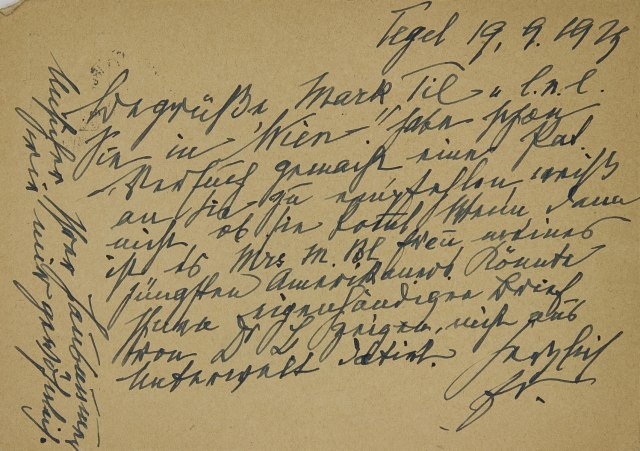 Tegel 19. 9. 1925
Begrüße Mark Til u l. n. l.
Sie in Wien. Habe schon
Versuch gemacht einen Pat.
an Sie zu empfehlen weiß
nicht, ob sie kommt. Wenn, dann
ist es Mrs M. Bl Frau meines
jüngsten Amerikaners. Könnte
Ihnen eigenhändigen Brief
von Dr L zeigen, nicht aus
Unterwelt datirt.
Herzlich
Fr.
Ihrer
wie mit gewöhnlich.